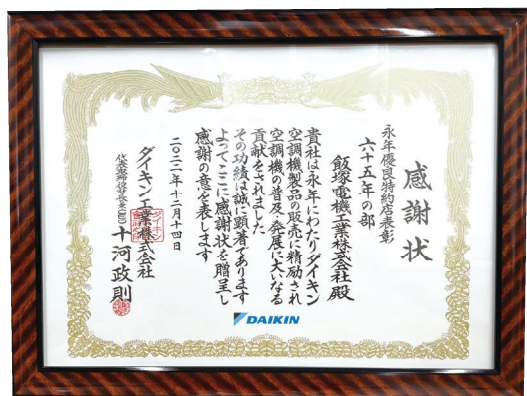 感謝状
永年優良特約店表彰
六十五年の部
飯塚電機工業株式会社殿
貴社は永年にわたりダイキン
空調機製品の販売に精励され
空調機の普及、発展に大いなる
貢献をされました
その功績は誠に顕著であります
よってここに感謝状を贈呈し
感謝の意を表します
二〇二二年十二月十四日
ダイキン工業株式会社
代表取締役社長兼CEO 十河政則
DAIKIN